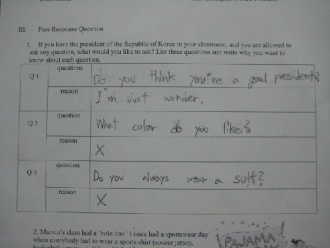 III. Free Response Question
1. If you have the president of the Republic of Korea in your classroom, and you are allowed to
ask any question, what would you like to ask? List three questions and write why you want to
know about each question.
Q 1 question Do you think you're a good president?
reason I'm just wonder.
Q 2 question What color do you like?
reason X
Q 3 question Do you always wear a suit?
reason X
2. Marvin's class had a "hole day" I once had a sportswear day
when everybody had to wear a sports shirt (soccer jersey,
PAJAMA!